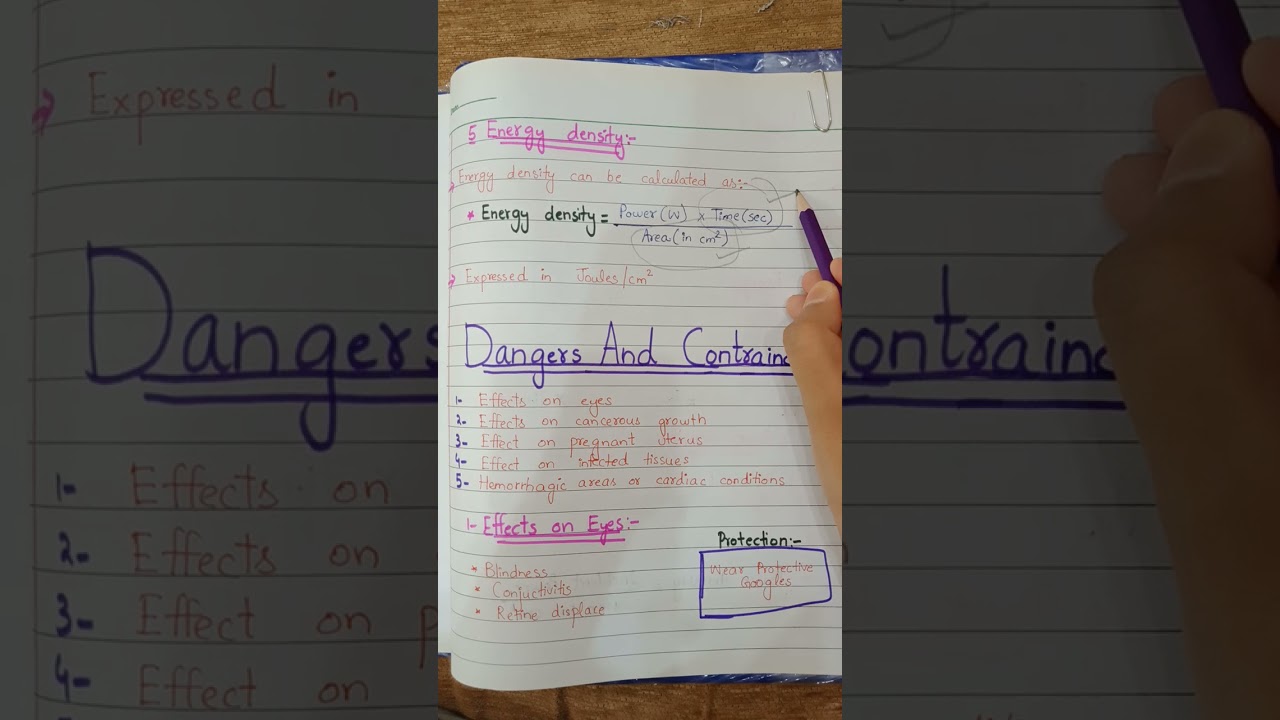 5 Energy density:-
Energy density can be calculated as:-
* Energy density = Power (W) × Time (sec)
Area (in cm²)
Expressed in Joules/cm²
Dangers And Contraind
1- Effects on eyes
2- Effects on cancerous growth
3- Effect on pregnant uterus
4- Effect on infected tissues
5- Hemorrhagic areas or cardiac conditions
1- Effects on Eyes:-
* Blindness
* Conjuctivitis
* Retine displace
Protection:-
Wear Protective
Googles
Expressed in
Dangers
1- Effects on
2- Effects on
3- Effect on p
4- Effect on
ontraind